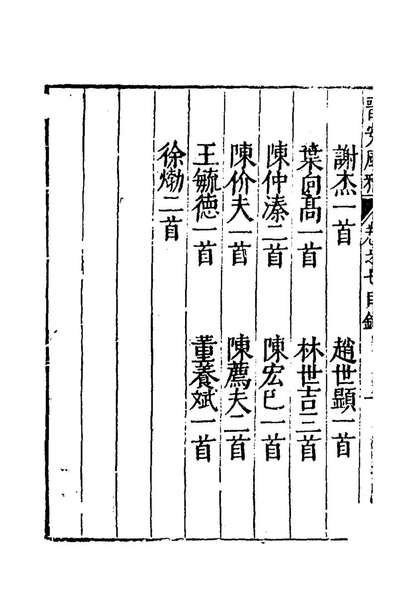 晉安風雅 卷之七目錄
謝杰一首 趙世顯一首
葉向高一首 林世吉三首
陳仲溱二首 陳宏已一首
陳价夫一首 陳薦夫二首
王毓德一首 董養斌一首
徐㷆二首